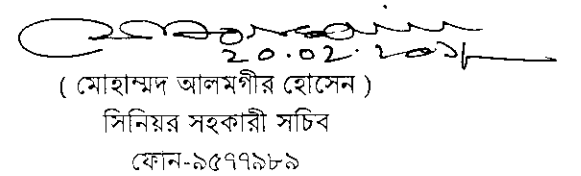 20.02.201
( মোহাম্মদ আলমগীর হোসেন )
সিনিয়র সহকারী সচিব
ফোন-৯৫৭৭৯৮৯